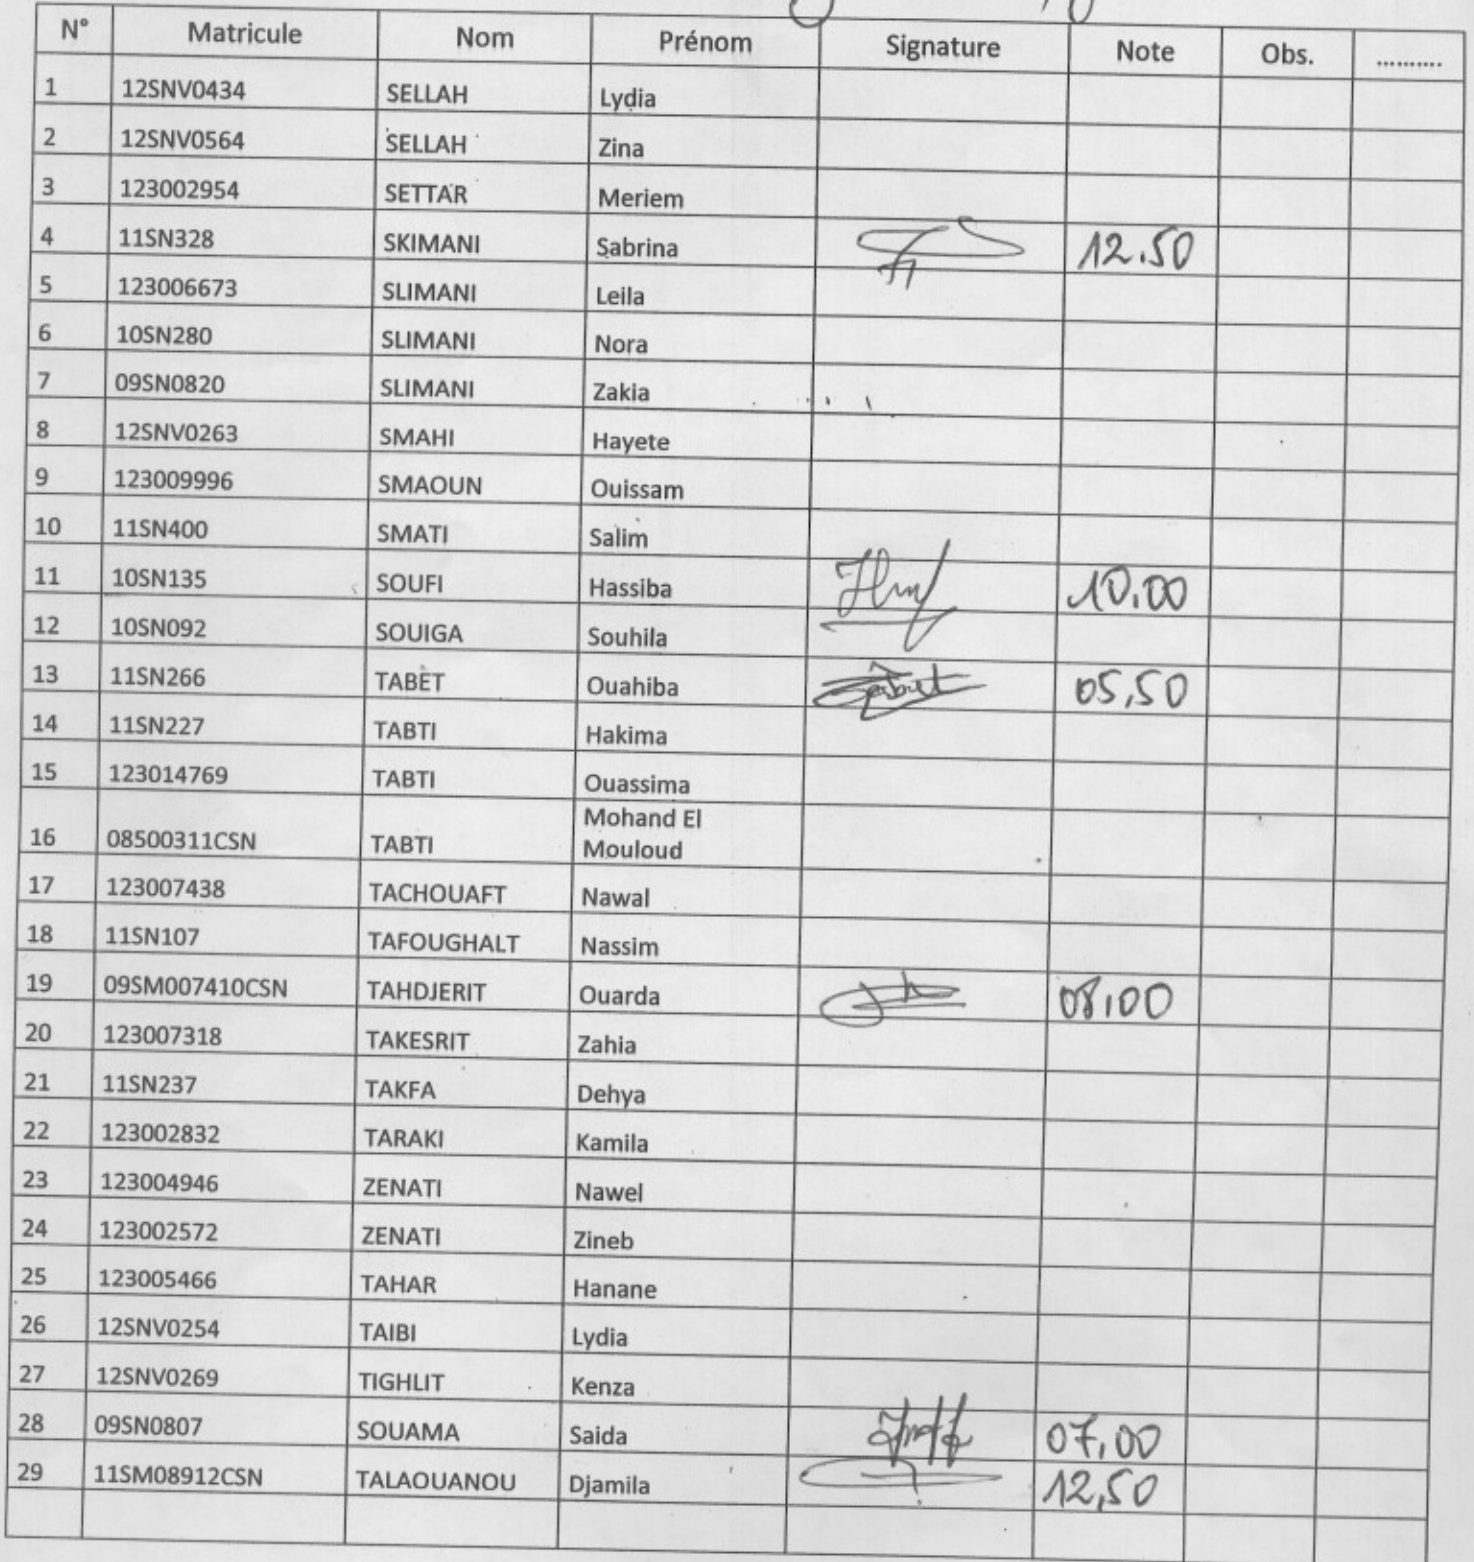 N° Matricule Nom Prénom Signature Note Obs. ..........
1 12SNV0434 SELLAH Lydia
2 12SNV0564 SELLAH Zina
3 123002954 SETTAR Meriem
4 11SN328 SKIMANI Sabrina 12.50
5 123006673 SLIMANI Leila
6 10SN280 SLIMANI Nora
7 09SN0820 SLIMANI Zakia
8 12SNV0263 SMAHI Hayete
9 123009996 SMAOUN Ouissam
10 11SN400 SMATI Salim
11 10SN135 SOUFI Hassiba 10,00
12 10SN092 SOUIGA Souhila
13 11SN266 TABET Ouahiba 05,50
14 11SN227 TABTI Hakima
15 123014769 TABTI Ouassima
16 08500311CSN TABTI Mohand El
Mouloud
17 123007438 TACHOUAFT Nawal
18 11SN107 TAFOUGHALT Nassim
19 09SM007410CSN TAHDJERIT Ouarda 08,00
20 123007318 TAKESRIT Zahia
21 11SN237 TAKFA Dehya
22 123002832 TARAKI Kamila
23 123004946 ZENATI Nawel
24 123002572 ZENATI Zineb
25 123005466 TAHAR Hanane
26 12SNV0254 TAIBI Lydia
27 12SNV0269 TIGHLIT Kenza
28 09SN0807 SOUAMA Saida 07,00
29 11SM08912CSN TALAOUANOU Djamila 12,50